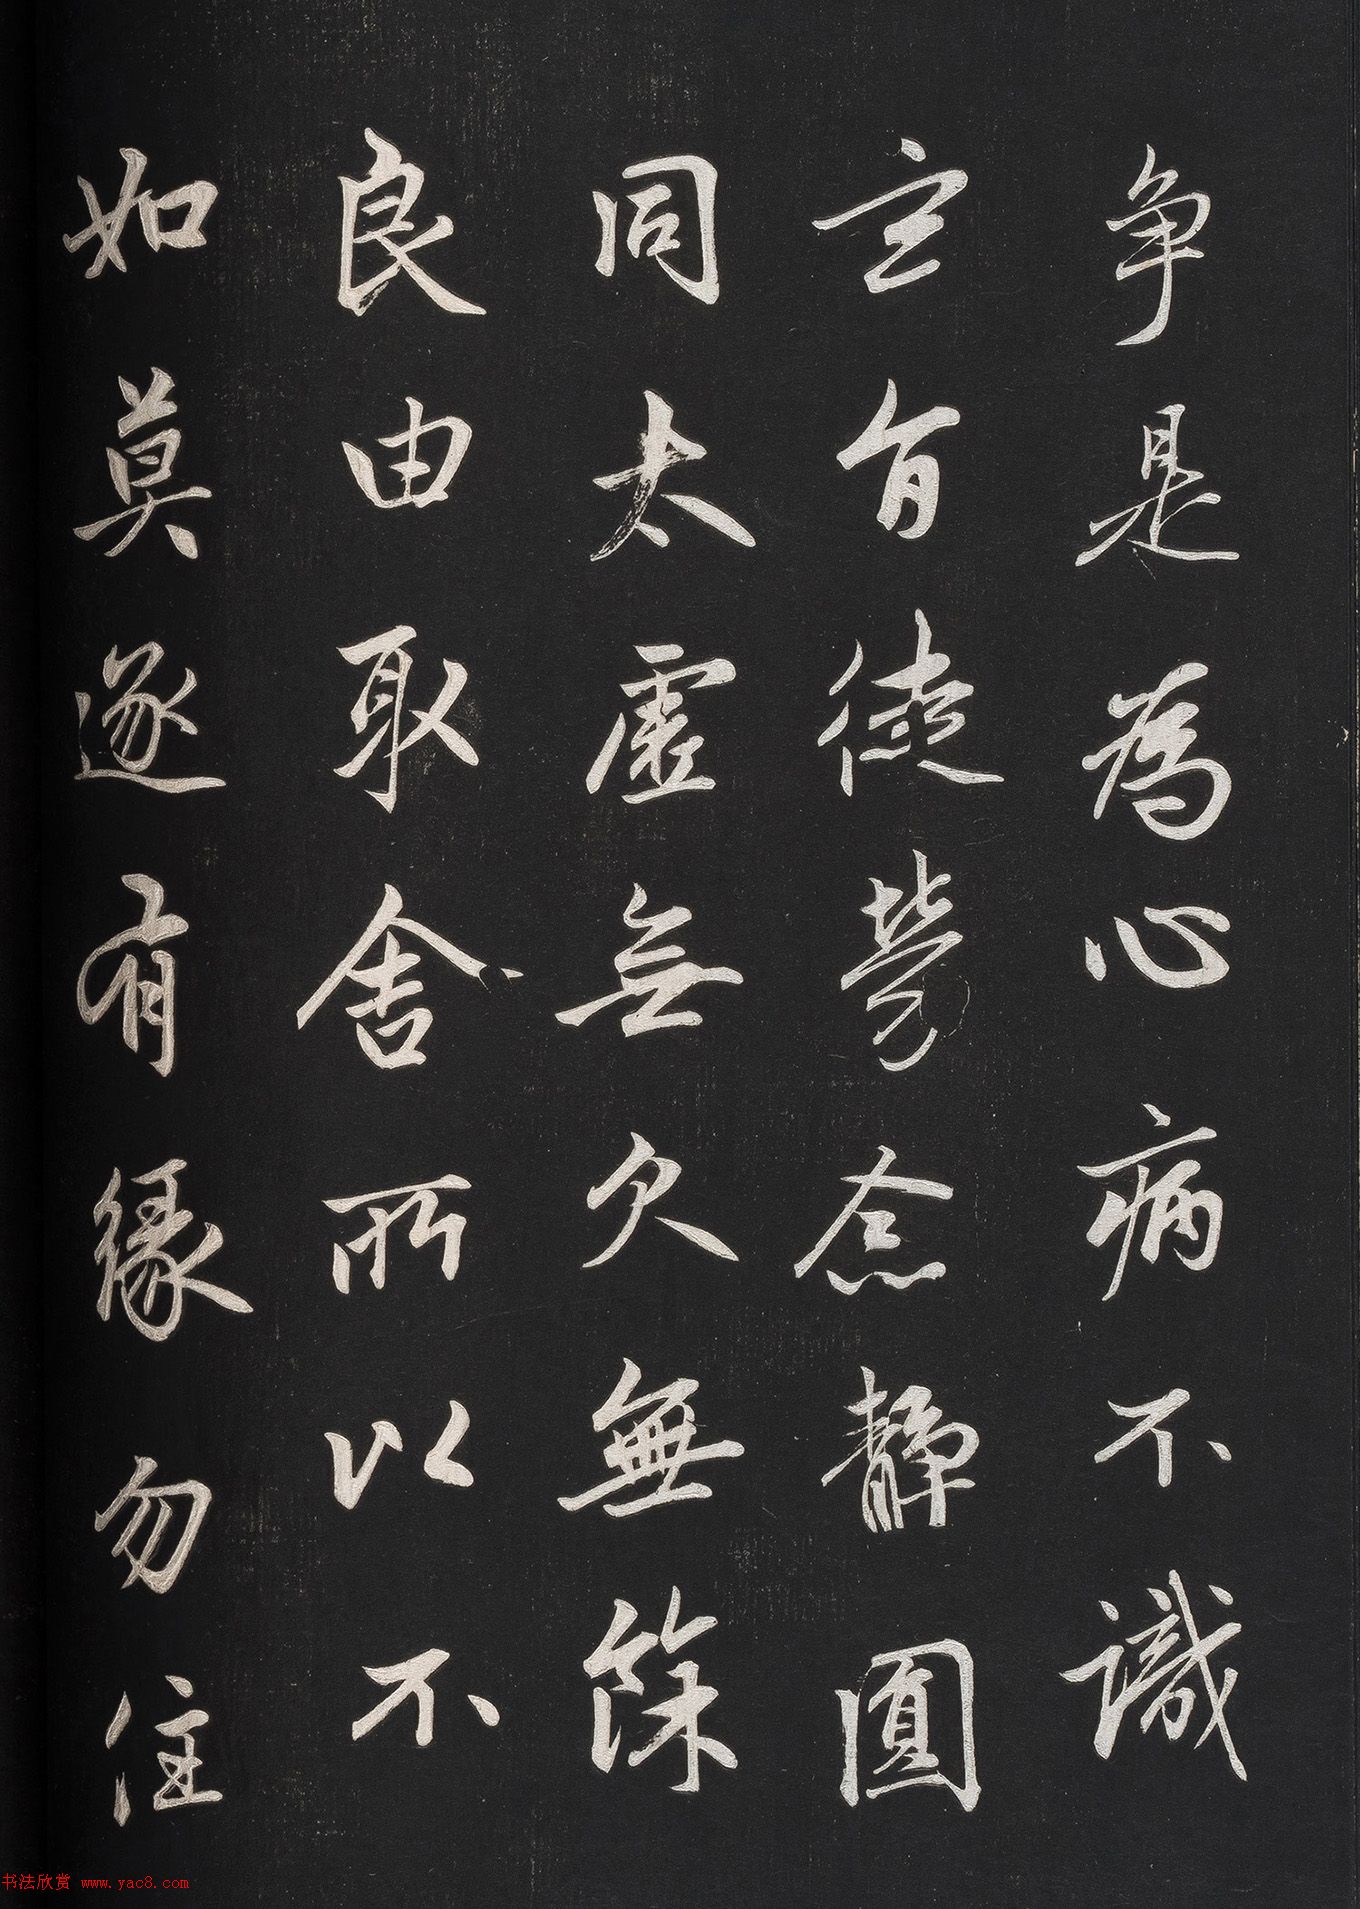 争是為心病不識
玄旨徒勞念静圓
同太虛無欠無餘
良由取舍所以不
如莫逐有緣勿住
书法欣赏 www.yac8.com